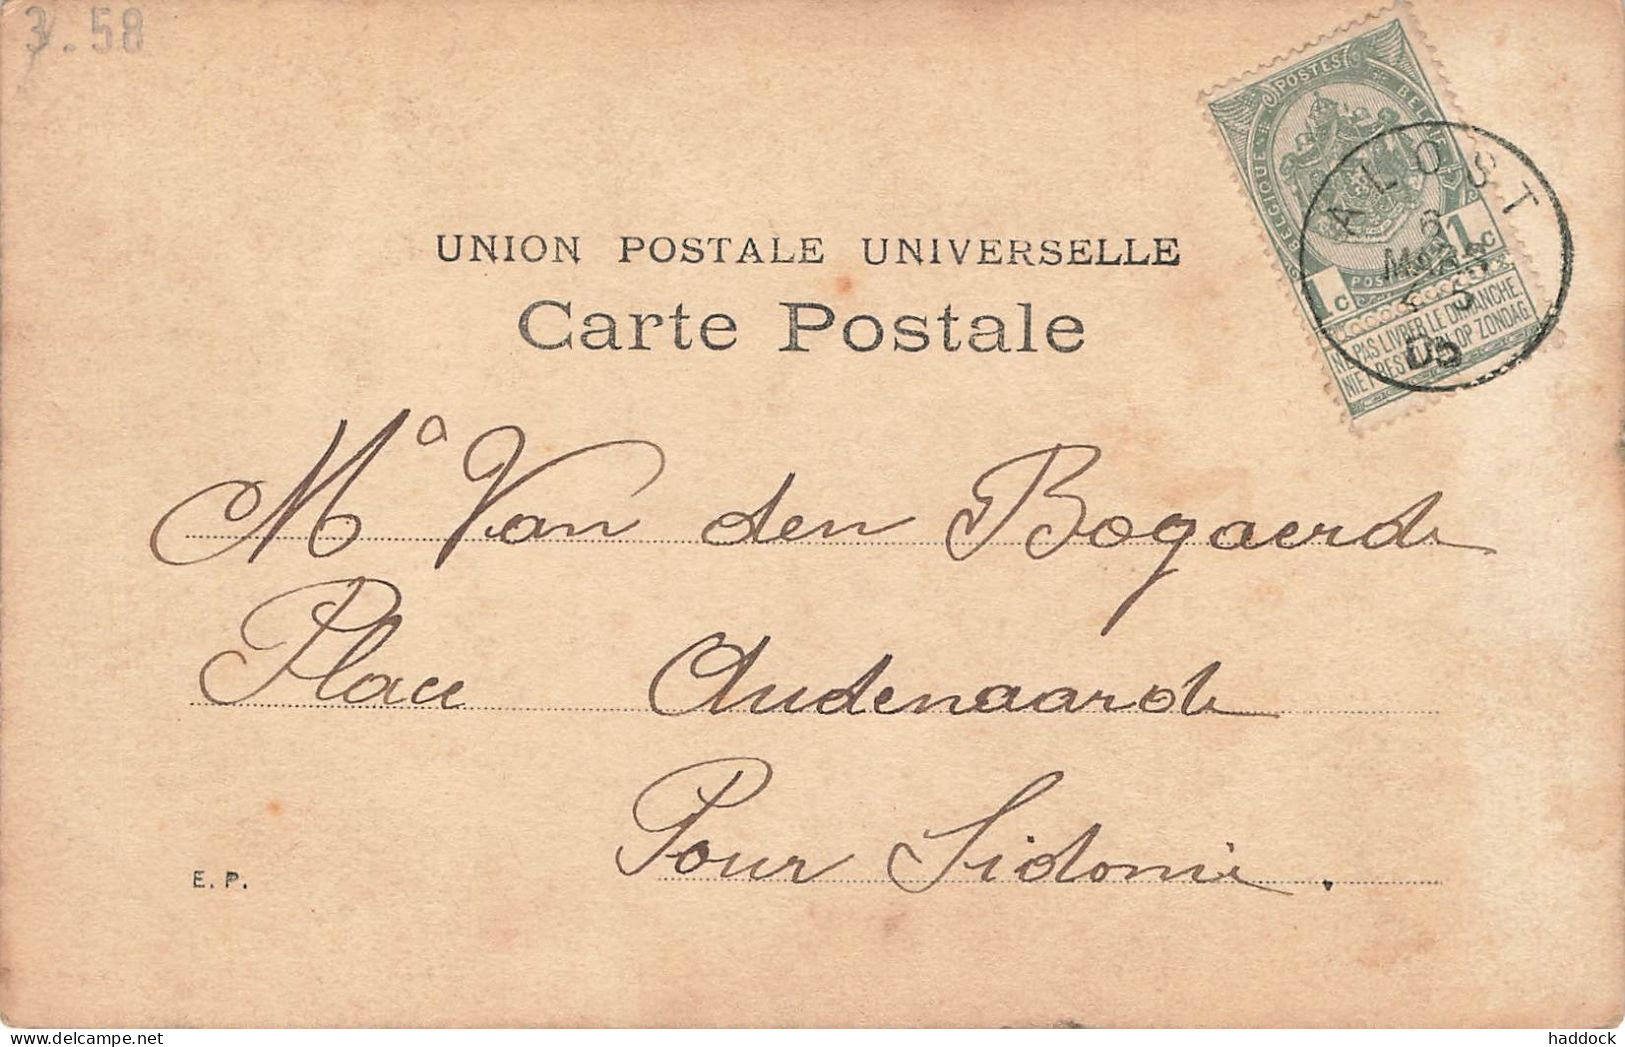 3.58
POSTES
BELGIQUE BELGIQUE
1c 1c
NE PAS LIVRER LE DIMANCHE.
NIET BESTELLEN OP ZONDAG.
ALOST
6
MARS
05
UNION POSTALE UNIVERSELLE
Carte Postale
Ma Van den Bogaerde
Place Audenaarde
Pour Sidonie.
E. P.
haddock